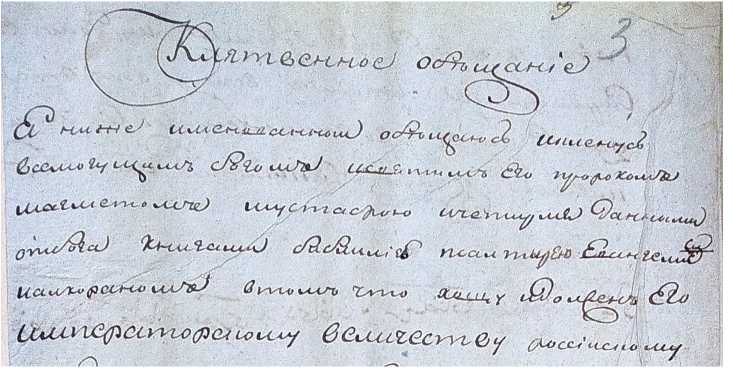 3
Клятвенное обѣщанiе
Я ниже именованныи обѣщаюсь иклянусь
всемогущимъ бгомъ исвятимъ Его пророкомъ
магметомъ мустафою ичетирмя данними
отбога книгами бибилiею псалтырею Евангелие
иалкораномъ втомъ что хощу идолженъ Его
императорскому величеству россiискому